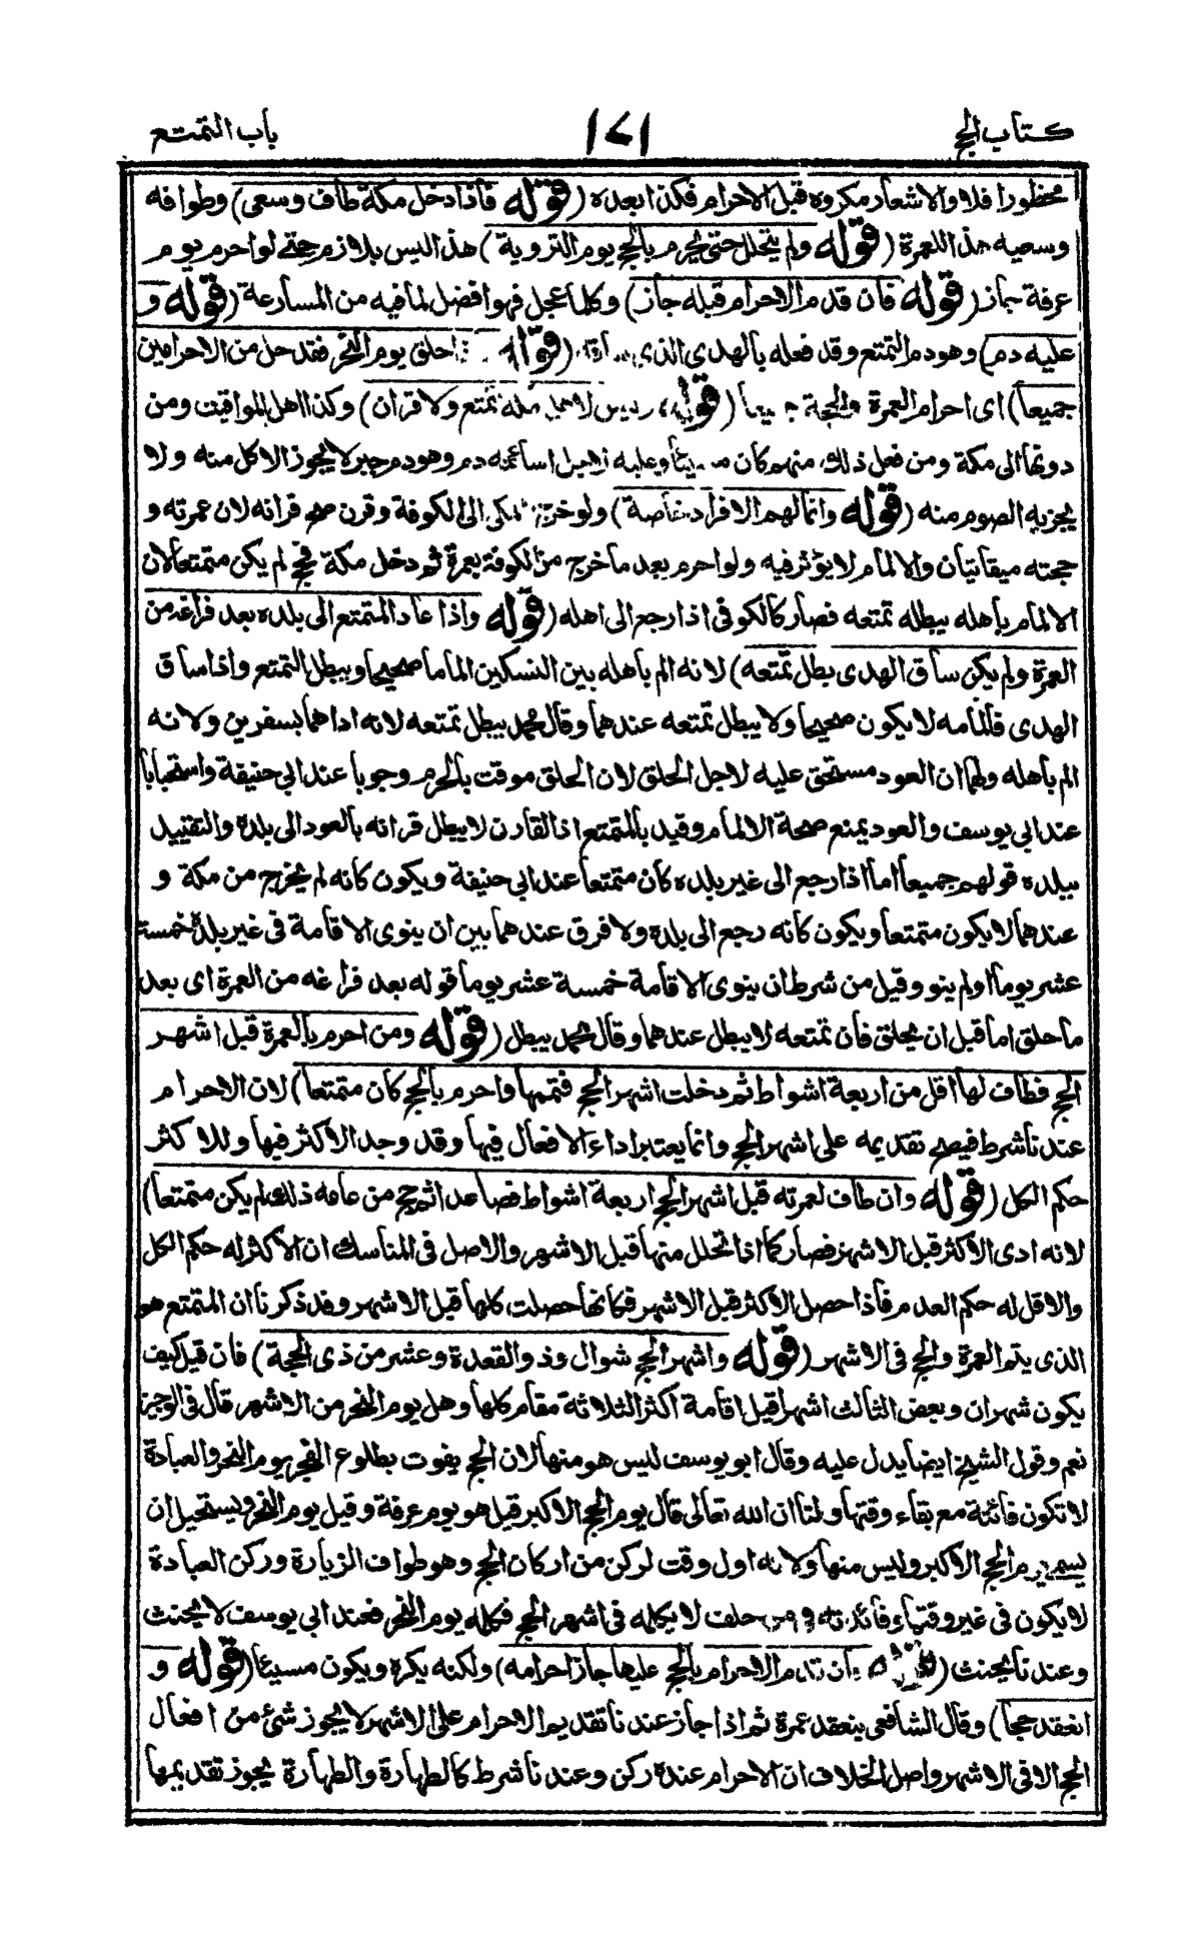 كتاب الحج
١٧١
باب التمتع
محظورا فلا والاشعار مكروه قبل الاحرام فكذا بعده (قوله فاذا دخل مكة طاف وسعى) وطوافه
وسعيه هذا للعمرة (قوله ولم يتحلل حتى يحرم بالحج يوم التروية) هذا ليس بلازم حتى لو احرم يوم
عرفة جاز (قوله فان قدم الاحرام قبله جاز) وكلما عجل فهو افضل لما فيه من المسارعة (قوله و
عليه دم) وهو دم التمتع وقد فعله بالهدى الذى (قوله احلق يوم النحر فقد حل من الاحرامين
جميعا) اى احرام العمرة والحجة (قوله وليس لاهل مكة تمتع ولا قران) وكذا اهل المواقيت ومن
دونها الى مكة ومن فعل ذلك منهم كان مسيئا وعليه لاجل اساءته دم وهو دم جبر لا يجوز الاكل منه ولا
يجزيه الصوم منه (قوله وانما لهم الافراد خاصة) ولو خرج المكى الى الكوفة وقرن صح قرانه لان عمرته و
حجته ميقاتيان والالمام لا يؤثر فيه ولو احرم بعد ما خرج من الكوفة بعمرة ثم دخل مكة فحج لم يكن متمتعا لان
الالمام باهله يبطله تمتعه فصار كالكوفى اذا رجع الى اهله (قوله واذا عاد المتمتع الى بلده بعد فراغه من
العمرة ولم يكن ساق الهدى بطل تمتعه) لانه الم باهله بين النسكين الماما صحيحا ويبطل التمتع واذا ساق
الهدى فالمامه لا يكون صحيحا ولا يبطل تمتعه عندهما وقال محمد يبطل تمتعه لانه اداهما بسفرين ولانه
الم باهله ولهما ان العود مستحق عليه لاجل الحلق لان الحلق موقت بالحرم وجوبا عند ابى حنيفة واستحبابا
عند ابى يوسف والعود يمنع صحة الالمام وقيد بالمتمتع اذ القارن لا يبطل قرانه بالعود الى بلدة والتقييد
ببلده قولهم جميعا اما اذا رجع الى غير بلده كان متمتعا عند ابى حنيفة ويكون كانه لم يخرج من مكة و
عندهما لا يكون متمتعا ويكون كانه رجع الى بلده ولا فرق عندهما بين ان ينوى الاقامة فى غير بلدة خمسة
عشر يوما او لم ينو وقيل من شرط ان ينوى الاقامة خمسة عشر يوما قوله بعد فراغه من العمرة اى بعد
ما حلق اما قبل ان يحلق فان تمتعه لا يبطل عندهما وقال محمد يبطل (قوله ومن احرم بالعمرة قبل اشهر
الحج فطاف لها اقل من اربعة اشواط ثم دخلت اشهر الحج فتممها واحرم بالحج كان متمتعا) لان الاحرام
عندنا شرط فيصح تقديمه على اشهر الحج وانما يعتبر اداء الافعال فيها وقد وجد الاكثر فيها وللاكثر
حكم الكل (قوله وان طاف لعمرته قبل اشهر الحج اربعة اشواط فصاعدا ثم حج من عامه ذلك لم يكن متمتعا)
لانه ادى الاكثر قبل الاشهر فصار كما اذا تحلل منها قبل الاشهر والاصل فى المناسك ان الاكثر له حكم الكل
والاقل له حكم العدم فاذا حصل الاكثر قبل الاشهر فكانها حصلت كلها قبل الاشهر وقد ذكرنا ان المتمتع هو
الذى يتم العمرة والحج فى الاشهر (قوله واشهر الحج شوال وذو القعدة وعشر من ذى الحجة) فان قيل كيف
يكون شهران وبعض الثالث اشهرا قيل اقامة اكثر الثلاثة مقام كلها وهل يوم النحر من الاشهر قال فى الوجيز
نعم وقول الشيخ ايضا يدل عليه وقال ابو يوسف ليس هو منها لان الحج يفوت بطلوع الفجر يوم النحر والعبادة
لا تكون فائتة مع بقاء وقتها ولنا ان الله تعالى قال يوم الحج الاكبر قيل هو يوم عرفة وقيل يوم النحر ويستحيل ان
يسمى يوم الحج الاكبر وليس منها ولانه اول وقت لركن من اركان الحج وهو طواف الزيارة وركن العبادة
لا يكون فى غير وقتها وفائدته فيمن حلف لا يكلمه فى اشهر الحج فكلمه يوم النحر فعند ابى يوسف لا يحنث
وعندنا يحنث (قوله فان قدم الاحرام بالحج عليها جاز احرامه) ولكنه يكره ويكون مسيئا (قوله و
انعقد حجا) وقال الشافعى ينعقد عمرة ثم اذا جاز عندنا تقديم الاحرام على الاشهر لا يجوز شئ من افعال
الحج الا فى الاشهر واصل الخلاف ان الاحرام عنده ركن وعندنا شرط كالطهارة والطهارة يجوز تقديمها